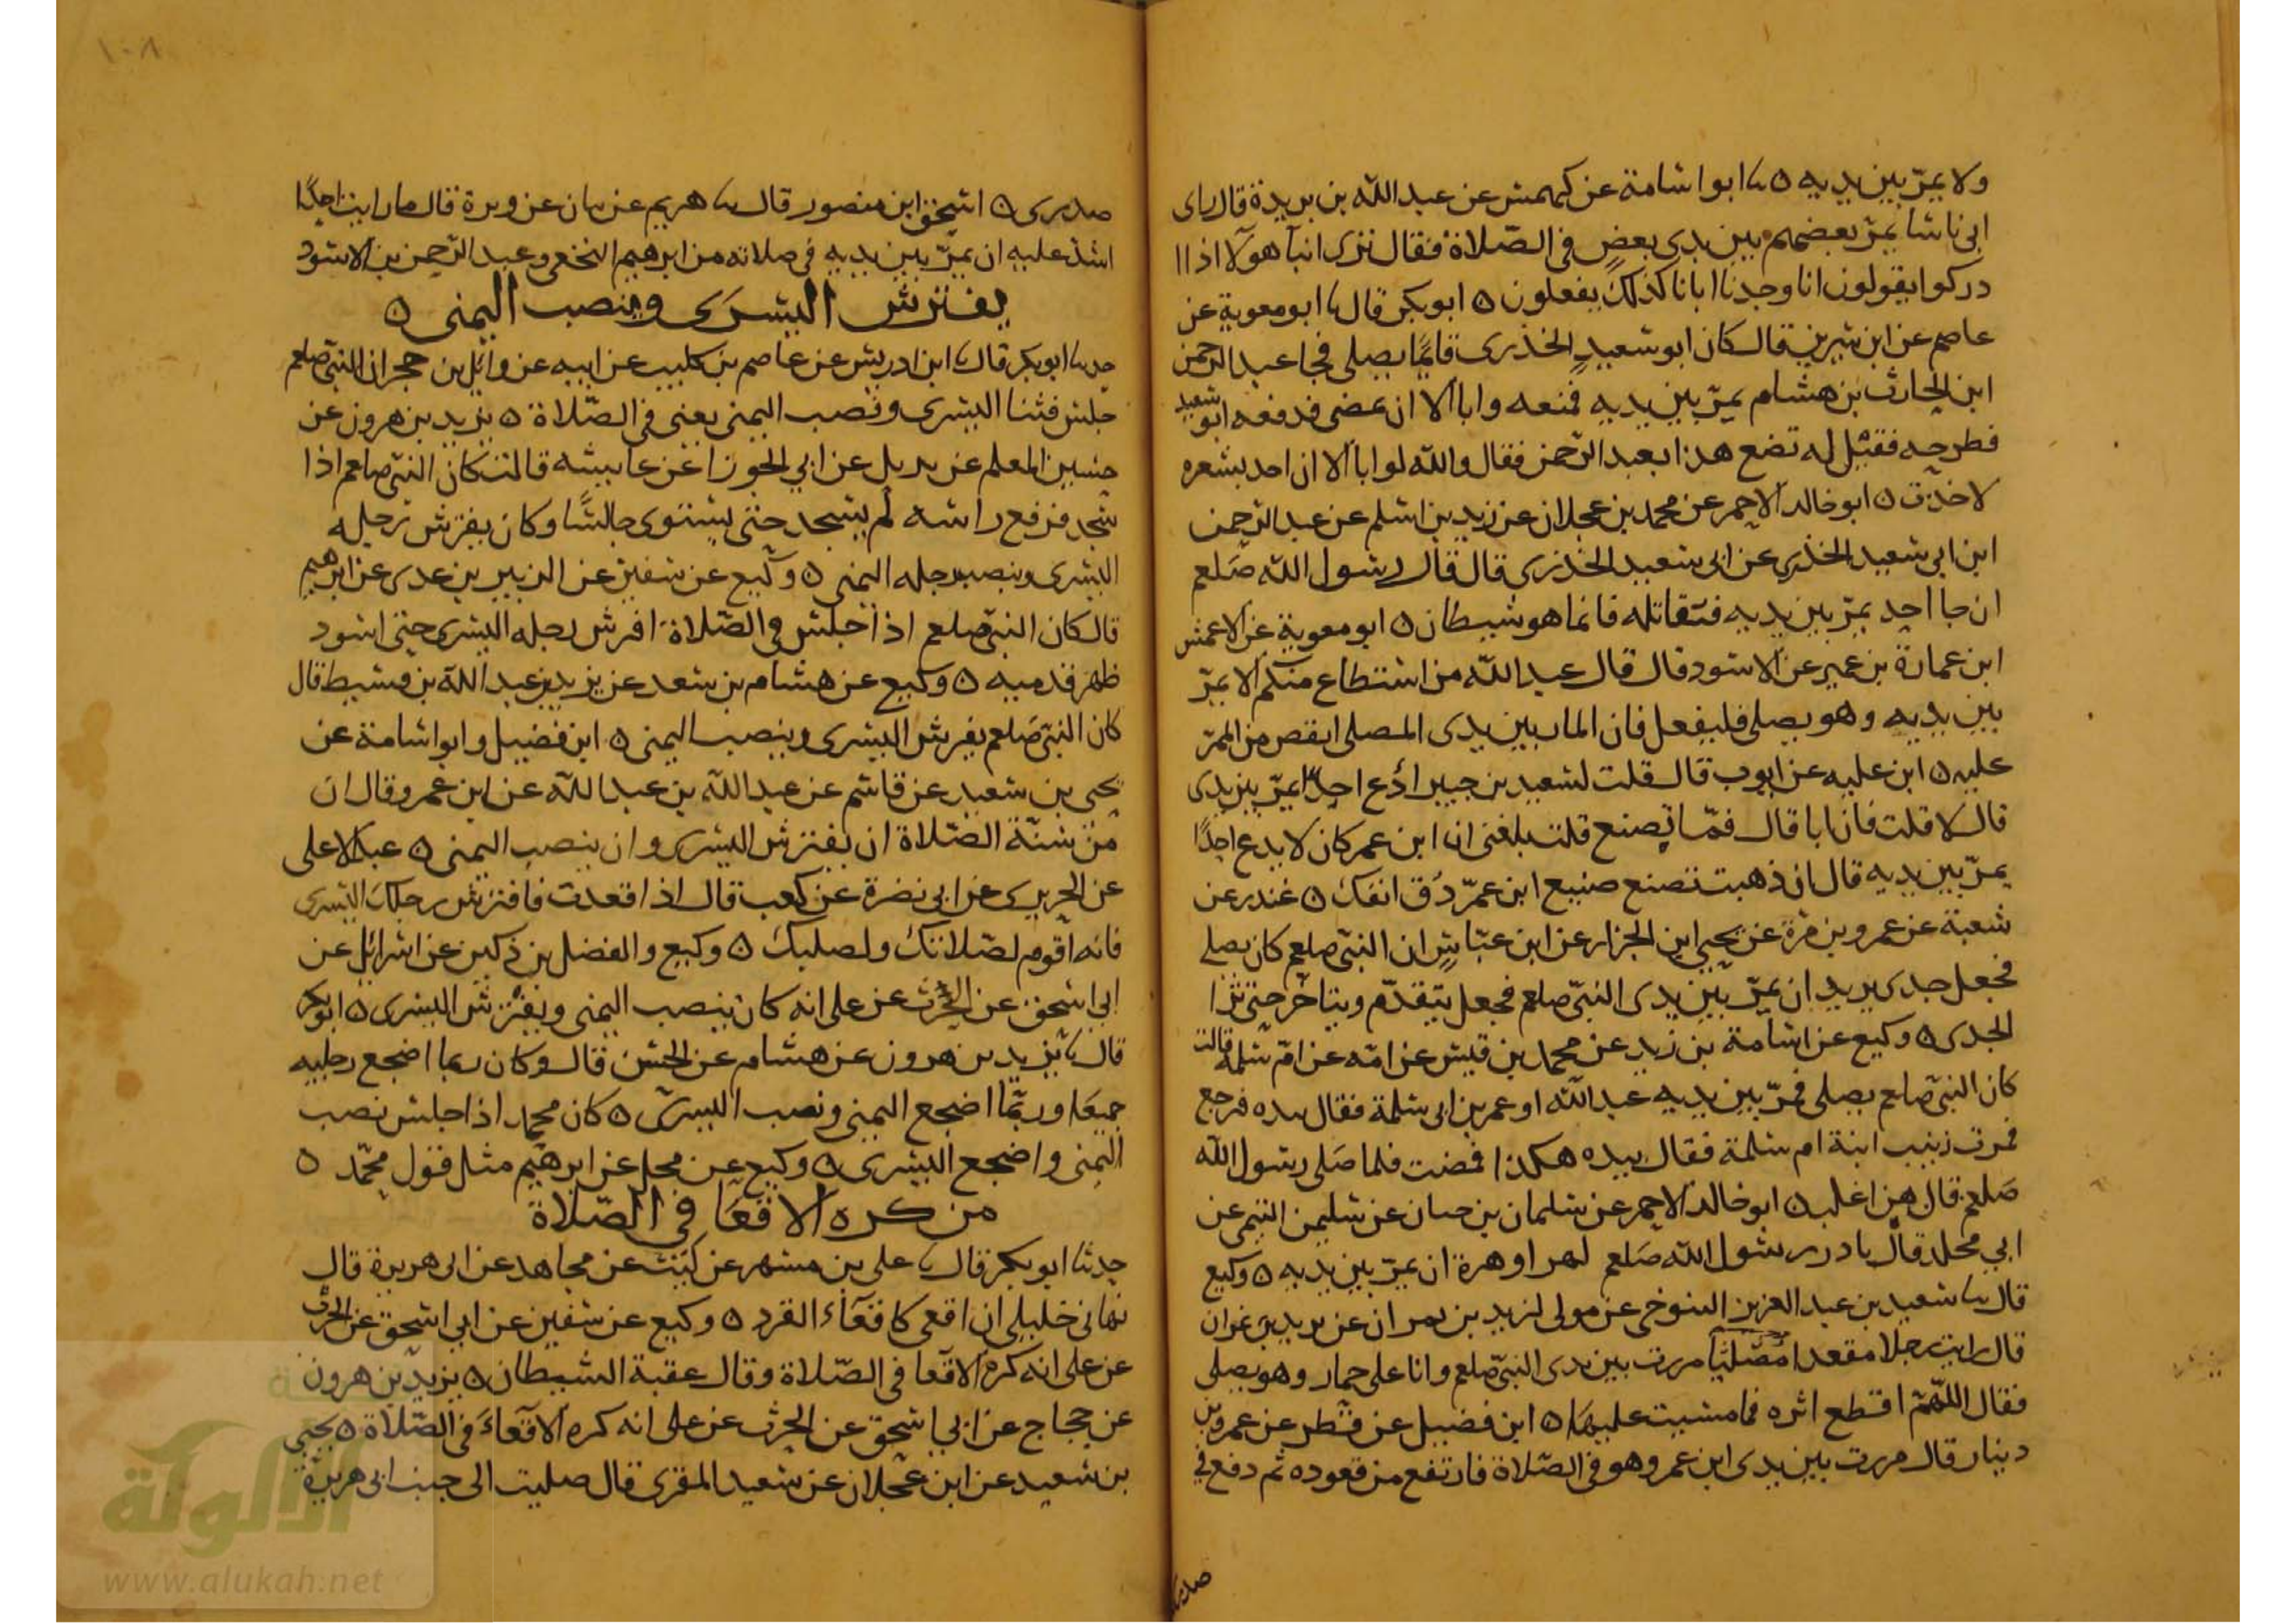 ولا يمرّ بين يديه ٥ نا ابو اسامة عن كهمس عن عبد الله بن بريدة قال راى
ابى ناسا يمرّ بعضهم بين يدى بعض فى الصّلاة فقال ترى ابنآ هولآ اذا ا
دركوا يقولون انا وجدنا ابانا كذلك يفعلون ٥ ابو بكر قال نا ابو معوية عن
عاصم عن ابن سيرين قال كان ابو سعيد الخدرى قايما يصلى فجا عبد الرحمن
ابن الحارث بن هشام يمرّ بين يديه فمنعه وابا الا ان يمضى فدفعه ابو سعيد
فطرحه فقيل له تضع هذا بعبد الرحمن فقال والله لو ابا الا ان احد بشعره
لاخذت ٥ ابو خالد الاحمر عن محمد بن عجلان عن زيد بن اسلم عن عبد الرحمن
ابن ابى سعيد الخدرى عن ابى سعيد الخدرى قال قال رسول الله صلعم
ان جا احد يمرّ بين يديه فتقاتله فانما هو شيطان ٥ ابو معوية عن الاعمش
ابن عمارة بن عمير عن الاسود قال قال عبد الله من استطاع منكم الا يمرّ
بين يديه وهو يصلى فليفعل فان المار بين يدى المصلى انقص من الممرّ
عليه ٥ ابن عليه عن ايوب قال قلت لسعيد بن جبير ادع احدًا يمرّ بين يدى
قال لا قلت فان ابا قال فمّا تصنع قلت بلغنى ان ابن عمر كان لا يدع احدًا
يمرّ بين يديه قال ان ذهبت تصنع صنيع ابن عمرّ دق انفك ٥ غندر عن
شعبة عن عمرو بن مرّة عن يحيى ابن الجزار عن ابن عبّاس ان النبىّ صلعم كان يصلى
فجعل جدى يريد ان يمرّ بين يدى النبىّ صلعم فجعل يتقدّم ويتاخر حتى نزا
الجدى ٥ وكيع عن اسامة بن زيد عن محمد بن قيس عن امّه عن امّ سلمة قالت
كان النبىّ صلعم يصلى فمرّ بين يديه عبد الله او عمر بن ابى سلمة فقال بيده فرجع
فمرت زينب ابنة ام سلمة فقال بيده هكذا فمضت فلما صلى رسول الله
صلعم قال هن اغلب ٥ ابو خالد الاحمر عن سلمان بن حيان عن سليمن التيمى عن
ابى مجلد قال بادر رسول الله صلعم لهر او هرة ان يمرّ بين يديه ٥ وكيع
قال نا سعيد بن عبد العزيز التنوخى عن مولى لزيد بن نمران عن يزيد بن نمران
قال رايت رجلا مقعدا مررت بين يدى النبىّ صلعم وانا على حمار وهو يصلى
فقال اللّهمّ اقطع اثره فما مشيت عليهما ٥ ابن فضيل عن فطر عن عمرو بن
دينار قال مررت بين يدى ابن عمر وهو فى الصّلاة فارتفع من قعوده ثم دفع فى
صدرى
١٠٨
صدرى ٥ اسحق ابن منصور قال نا هريم عن بيان عن وبرة قال ما رايت احدًا
اشد عليه ان يمرّ بين يديه فى صلاته من ابرهيم النخعى وعبد الرحمن بن الاسود
يفترش اليسرى وينصب اليمنى ٥
حدنا ابو بكر قال نا ابن ادريس عن عاصم بن كليب عن ابيه عن وائل بن حجر ان النبىّ صلعم
جلس فثنا اليسرى ونصب اليمنى يعنى فى الصّلاة ٥ يزيد بن هرون عن
حسين المعلم عن بديل عن ابى الجوزا عن عايشه قالت كان النبىّ صلعم اذا
سجد فرفع راسه لم يسجد حتى يستوى جالسًا وكان يفترش رجله
اليسرى وينصب رجله اليمنى ٥ وكيع عن سفين عن الزبير بن عدى عن ابرهيم
قال كان النبىّ صلعم اذا جلس فى الصّلاة افرش رجله اليسرى حتى اسود
ظهر قدميه ٥ وكيع عن هشام بن سعد عن يزيد بن عبد الله بن قسيط قال
كان النبىّ صلعم يفرش اليسرى وينصب اليمنى ٥ ابن فضيل وابو اسامة عن
يحيى بن سعيد عن قاسم عن عبد الله بن عبد الله عن ابن عمر وقال ان
من سنّة الصّلاة ان يفترش اليسرى وان ينصب اليمنى ٥ عبد الاعلى
عن الجريرى عن ابى نضرة عن كعب قال اذا قعدت فافترش رجلك اليسرى
فانه اقوم لصّلاتك ولصلبك ٥ وكيع والفضل بن دكين عن اسرائل عن
ابى اسحق عن الحرث عن على انه كان ينصب اليمنى ويفترش اليسرى ٥ ابو بكر
قال نا يزيد بن هرون عن هشام عن الحسن قال وكان ربما اضجع رجليه
جميعا وربّما اضجع اليمنى ونصب اليسرى ٥ كان محمد اذا جلس نصب
اليمنى واضجع اليسرى ٥ وكيع عن محل عن ابرهيم مثل قول محمّد ٥
من كره الاقعا فى الصّلاة
حدثنا ابو بكر قال نا على بن مسهر عن ليث عن مجاهد عن ابى هريرة قال
نهانى خليلى ان اقعى كاقعآء القرد ٥ وكيع عن سفين عن ابى اسحق عن الحرث
عن على انه كره الاقعا فى الصّلاة وقال عقبة الشيطان ٥ يزيد بن هرون
عن حجاج عن ابى اسحق عن الحرث عن على انه كره الاقعآء فى الصّلاة ٥ يحيى
بن سعيد عن ابن عجلان عن سعيد المقرى قال صليت الى جنب ابى هريرة
الألوكة
www.alukah.net